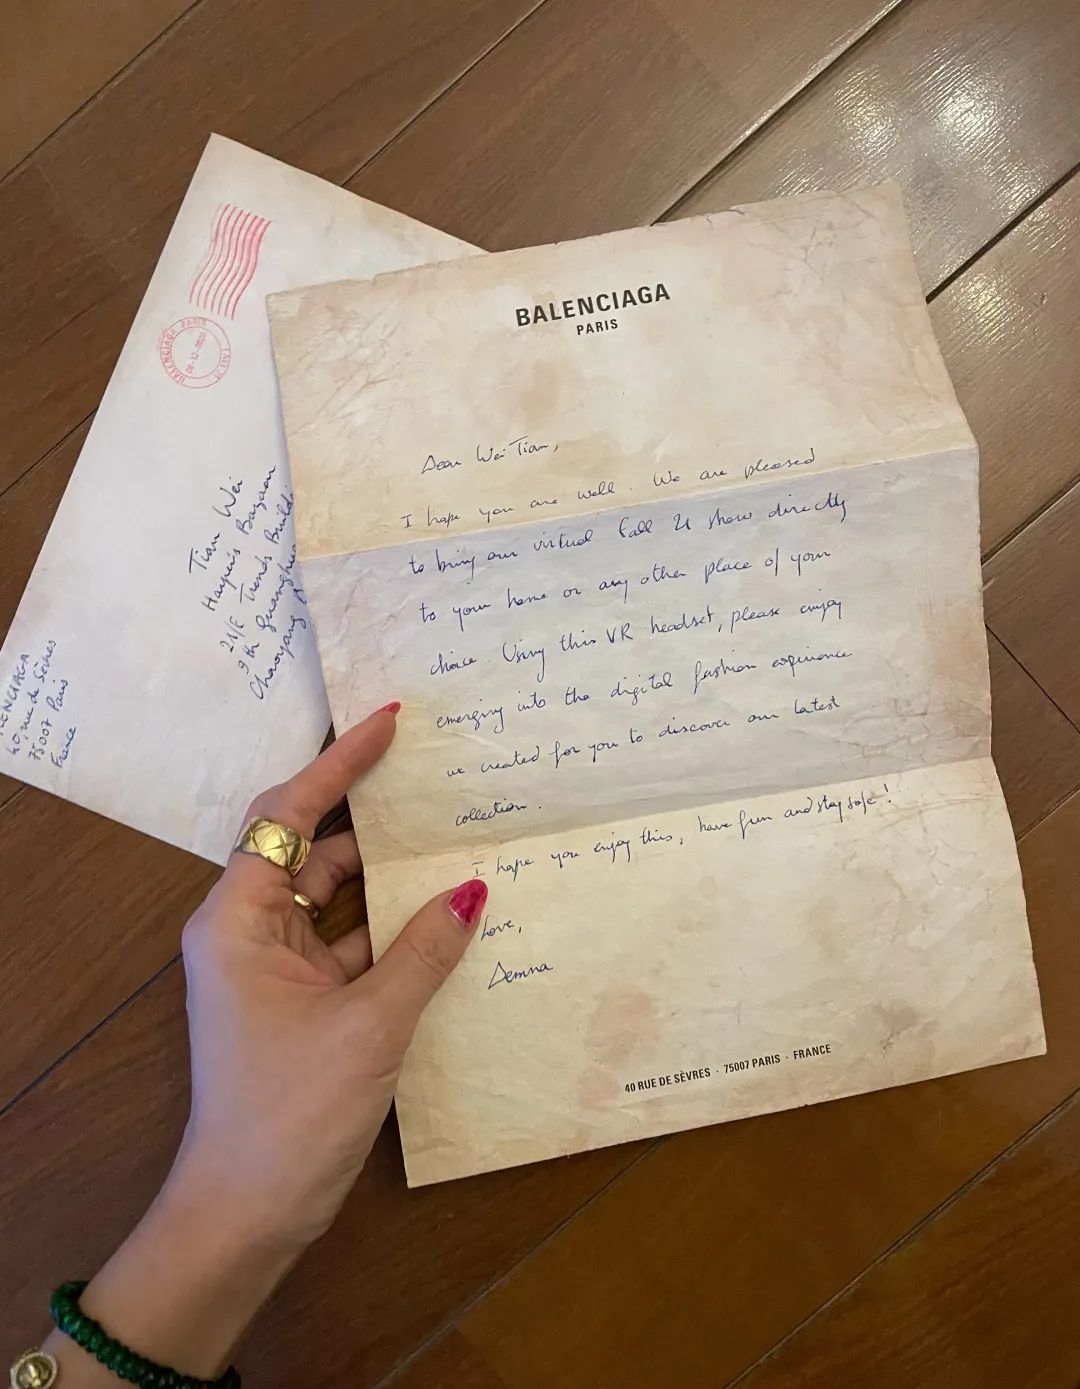 BALENCIAGA
PARIS
Dear Wei Tian,
I hope you are well. We are pleased
to bring our virtual Fall 21 show directly
to your home or any other place of your
choice. Using this VR headset, please enjoy
emerging into the digital fashion experience
we created for you to discover our latest
collection.
I hope you enjoy this, have fun and stay safe!
Love,
Demna
40 RUE DE SÈVRES · 75007 PARIS · FRANCE
BALENCIAGA PARIS
Tian Wei
Harper's Bazaar
21/E Trends Buildi
9th Guanghua
Chaoyang
40, rue de Sèvres
75007 Paris
France